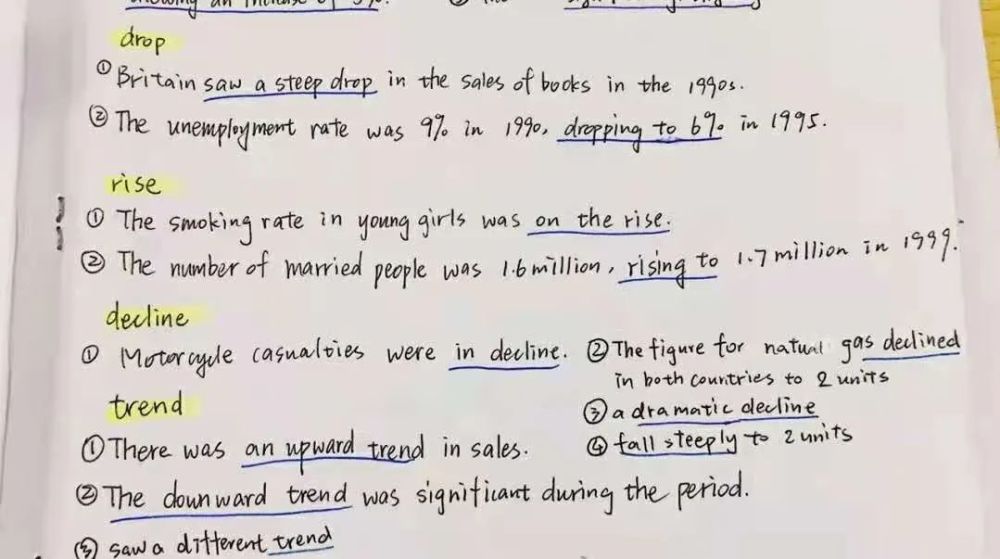 showing an increase of 5%.
drop
① Britain saw a steep drop in the sales of books in the 1990s.
② The unemployment rate was 9% in 1990, dropping to 6% in 1995.
rise
① The smoking rate in young girls was on the rise.
② The number of married people was 1.6 million, rising to 1.7 million in 1999.
decline
① Motorcycle casualties were in decline.
② The figure for natural gas declined
in both countries to 2 units
③ a dramatic decline
④ fall steeply to 2 units
trend
① There was an upward trend in sales.
② The downward trend was significant during the period.
③ saw a different trend